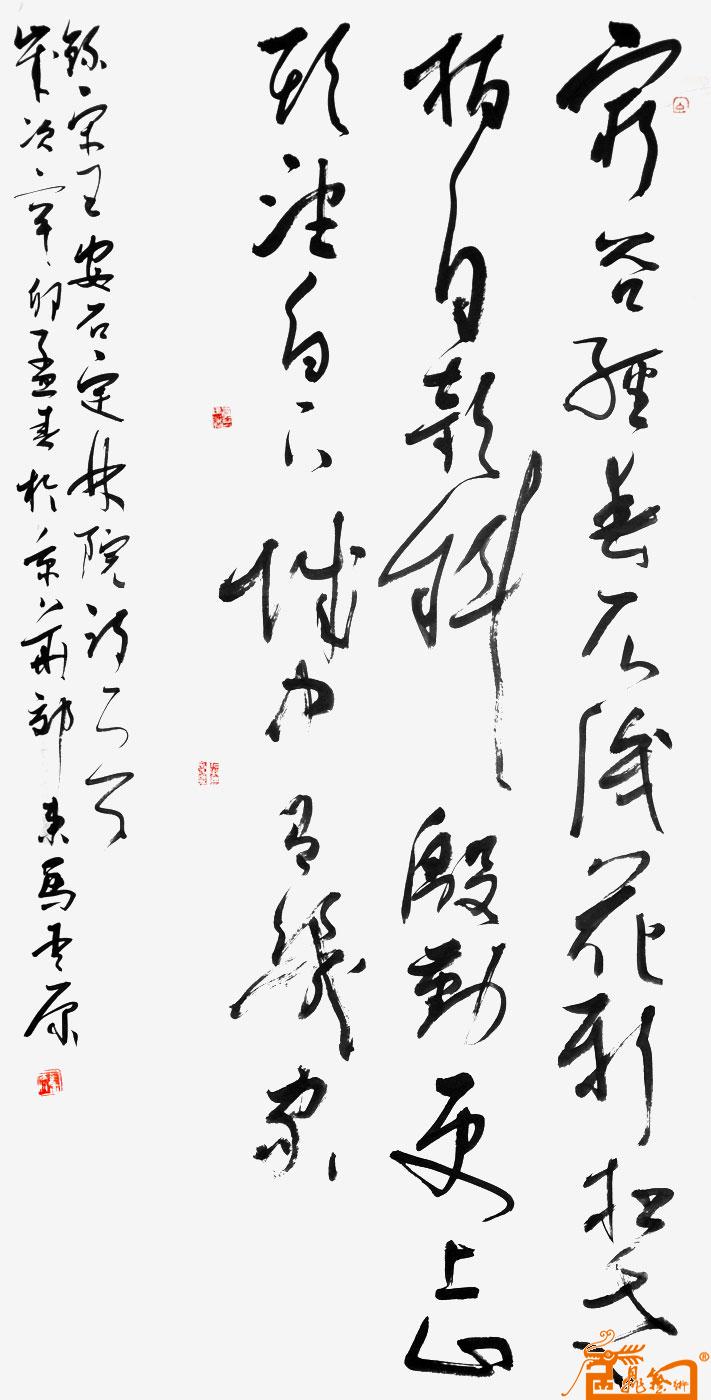 窮谷經春不識花新松老
柏自欹斜殷勤更上山
頭望白下城中有幾家
錄宋王安石定林院詩
歲次辛卯孟春於京